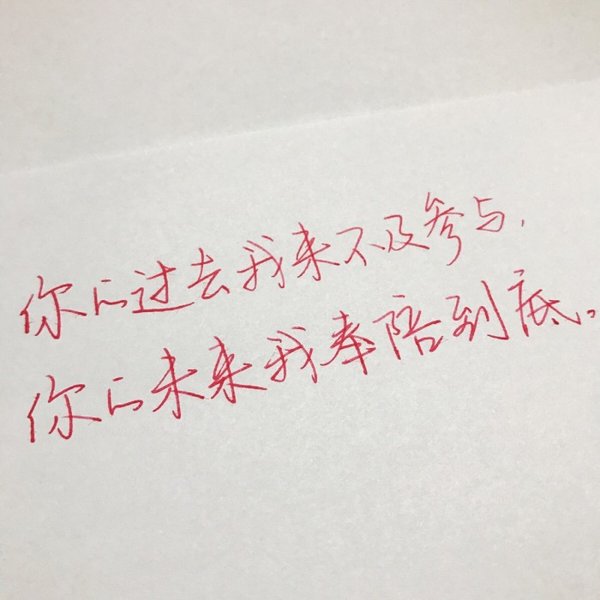 你的过去我来不及参与，
你的未来我奉陪到底。